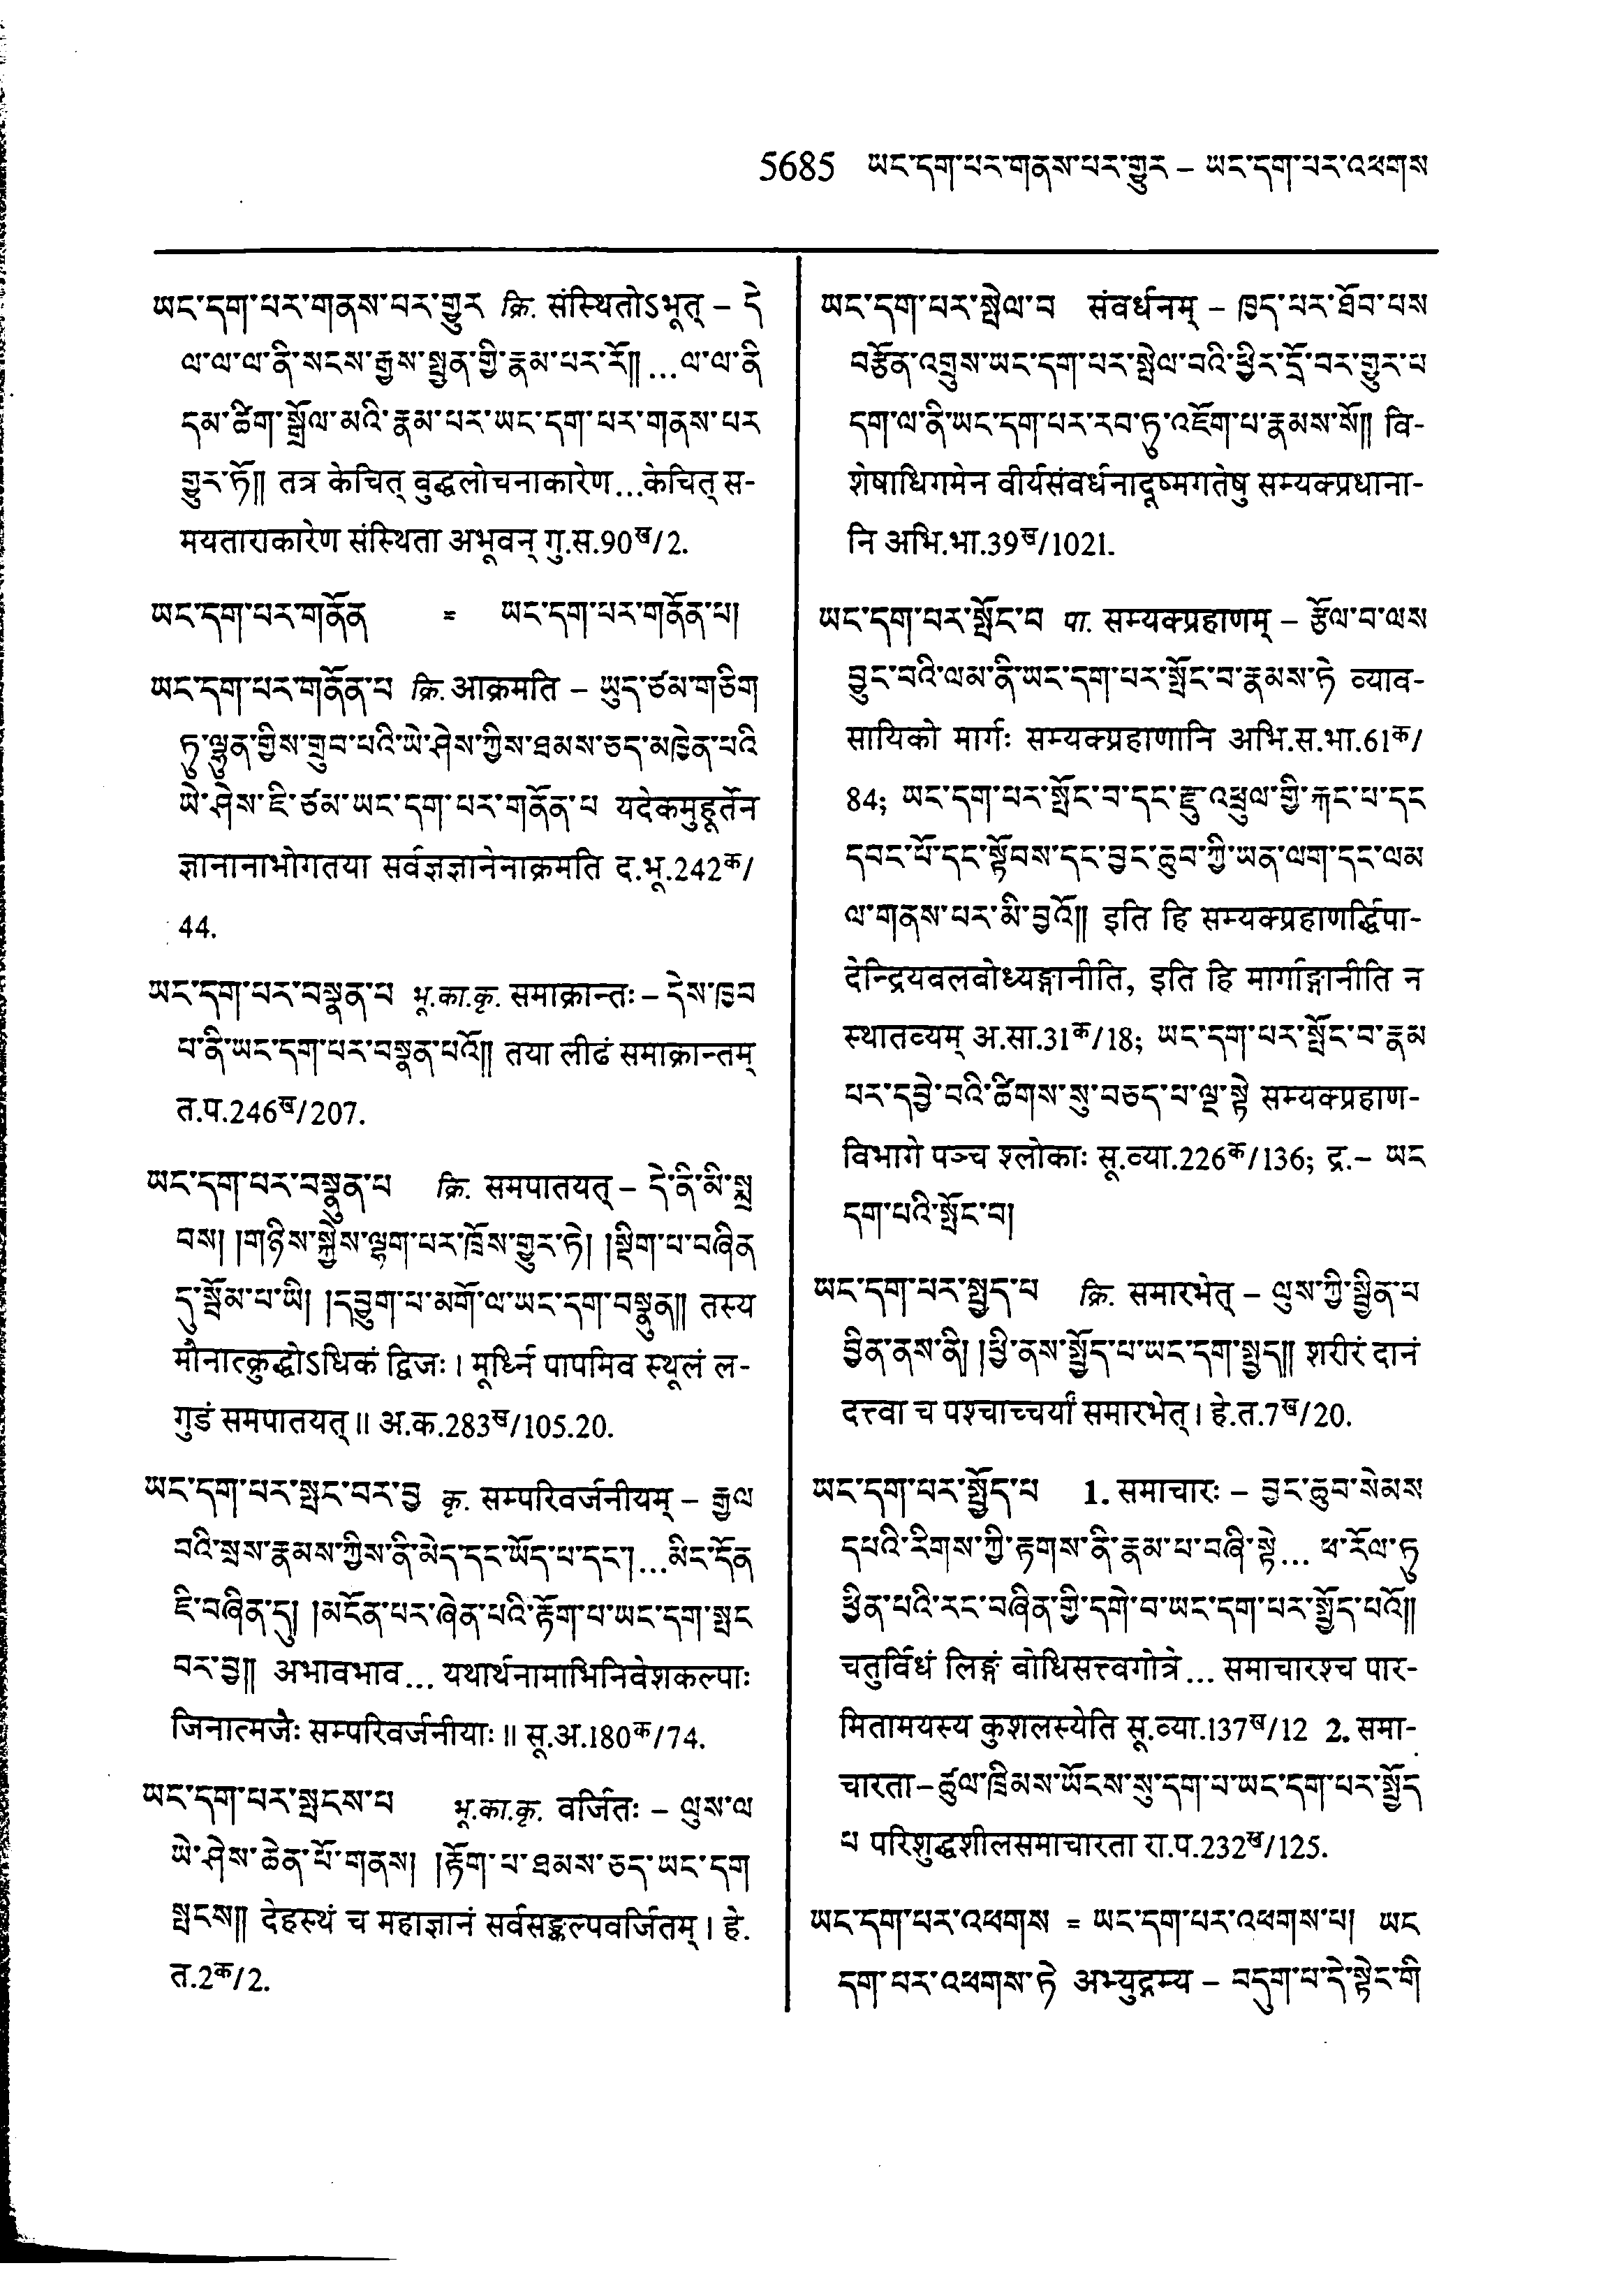 5685 ཡང་དག་པར་གནས་པར་གྱུར – ཡང་དག་པར་འཕགས
ཡང་དག་པར་གནས་པར་གྱུར क्रि. संस्थितोऽभूत् – དེ
ལ་ལ་ལ་ནི་སངས་རྒྱས་སྤྱན་གྱི་རྣམ་པར་རོ།། ...ལ་ལ་ནི
དམ་ཚིག་སྒྲོལ་མའི་རྣམ་པར་ཡང་དག་པར་གནས་པར
གྱུར་ཏོ།། तत्र केचित् वुद्धलोचनाकारेण...केचित् स-
मयताराकारेण संस्थिता अभूवन् गु.स.90ख/2.
ཡང་དག་པར་གནོན = ཡང་དག་པར་གནོན་པ།
ཡང་དག་པར་གནོན་པ क्रि. आक्रमति – ཡུད་ཙམ་གཅིག
ཏུ་ལྷུན་གྱིས་གྲུབ་པའི་ཡེ་ཤེས་ཀྱིས་ཐམས་ཅད་མཁྱེན་པའི
ཡེ་ཤེས་ཇི་ཙམ་ཡང་དག་པར་གནོན་པ यदेकमुहूर्तेन
ज्ञानानाभोगतया सर्वज्ञज्ञानेनाक्रमति द.भू.242क/
44.
ཡང་དག་པར་བསྣན་པ भू.का.कृ. समाक्रान्तः – དེས་ཁྱབ
པ་ནི་ཡང་དག་པར་བསྣན་པའོ།། तया लीढं समाक्रान्तम्
त.प.246ख/207.
ཡང་དག་པར་བསྣུན་པ क्रि. समपातयत् – དེ་ནི་མི་སྨྲ
བས། །གཉིས་སྐྱེས་ལྷག་པར་ཁྲོས་གྱུར་ཏེ། །སྡིག་པ་བཞིན
དུ་སྦོམ་པ་ཡི། །དབྱུག་པ་མགོ་ལ་ཡང་དག་བསྣུན།། तस्य
मौनात्क्रुद्धोऽधिकं द्विजः । मूर्ध्नि पापमिव स्थूलं ल-
गुडं समपातयत् ॥ अ.क.283ख/105.20.
ཡང་དག་པར་སྤང་བར་བྱ कृ. सम्परिवर्जनीयम् – རྒྱལ
བའི་སྲས་རྣམས་ཀྱིས་ནི་མེད་དང་ཡོད་པ་དང་། ...མིང་དོན
ཇི་བཞིན་དུ། །མངོན་པར་ཞེན་པའི་རྟོག་པ་ཡང་དག་སྤང
བར་བྱ།། अभावभाव... यथार्थनामाभिनिवेशकल्पाः
जिनात्मजैः सम्परिवर्जनीयाः ॥ सू.अ.180क/74.
ཡང་དག་པར་སྤངས་པ भू.का.कृ. वर्जितः – ལུས་ལ
ཡེ་ཤེས་ཆེན་པོ་གནས། །རྟོག་པ་ཐམས་ཅད་ཡང་དག
སྤངས།། देहस्थं च महाज्ञानं सर्वसङ्कल्पवर्जितम् । हे.
त.2क/2.
ཡང་དག་པར་སྤེལ་བ संवर्धनम् – ཁྱད་པར་ཐོབ་པས
བརྩོན་འགྲུས་ཡང་དག་པར་སྤེལ་བའི་ཕྱིར་དྲོ་བར་གྱུར་པ
དག་ལ་ནི་ཡང་དག་པར་རབ་ཏུ་འཇོག་པ་རྣམས་སོ།། वि-
शेषाधिगमेन वीर्यसंवर्धनादूष्मगतेषु सम्यक्प्रधाना-
नि अभि.भा.39ख/1021.
ཡང་དག་པར་སྤོང་བ पा. सम्यक्प्रहाणम् – རྩོལ་བ་ལས
བྱུང་བའི་ལམ་ནི་ཡང་དག་པར་སྤོང་བ་རྣམས་ཏེ व्याव-
सायिको मार्गः सम्यक्प्रहाणानि अभि.स.भा.61क/
84; ཡང་དག་པར་སྤོང་བ་དང་རྫུ་འཕྲུལ་གྱི་རྐང་པ་དང
དབང་པོ་དང་སྟོབས་དང་བྱང་ཆུབ་ཀྱི་ཡན་ལག་དང་ལམ
ལ་གནས་པར་མི་བྱའོ།། इति हि सम्यक्प्रहाणर्द्धिपा-
देन्द्रियवलवोध्यङ्गानीति, इति हि मार्गाङ्गानीति न
स्थातव्यम् अ.सा.31क/18; ཡང་དག་པར་སྤོང་བ་རྣམ
པར་དབྱེ་བའི་ཚིགས་སུ་བཅད་པ་ལྔ་སྟེ सम्यक्प्रहाण-
विभागे पञ्च श्लोकाः सू.व्या.226क/136; द्र.– ཡང
དག་པའི་སྤོང་བ།
ཡང་དག་པར་སྤྱད་པ क्रि. समारभेत् – ལུས་ཀྱི་སྦྱིན་པ
བྱིན་ནས་ནི། །ཕྱི་ནས་སྤྱོད་པ་ཡང་དག་སྤྱད།། शरीरं दानं
दत्त्वा च पश्चाच्चर्यां समारभेत् । हे.त.7ख/20.
ཡང་དག་པར་སྤྱོད་པ 1. समाचारः – བྱང་ཆུབ་སེམས
དཔའི་རིགས་ཀྱི་རྟགས་ནི་རྣམ་པ་བཞི་སྟེ... ཕ་རོལ་ཏུ
ཕྱིན་པའི་རང་བཞིན་གྱི་དགེ་བ་ཡང་དག་པར་སྤྱོད་པའོ།།
चतुर्विधं लिङ्गं वोधिसत्त्वगोत्रे... समाचारश्च पार-
मितामयस्य कुशलस्येति सू.व्या.137ख/12 2. समा-
चारता–ཚུལ་ཁྲིམས་ཡོངས་སུ་དག་པ་ཡང་དག་པར་སྤྱོད
པ परिशुद्धशीलसमाचारता रा.प.232ख/125.
ཡང་དག་པར་འཕགས = ཡང་དག་པར་འཕགས་པ། ཡང
དག་པར་འཕགས་ཏེ अभ्युद्गम्य – བདུག་པ་དེ་སྟེང་གི